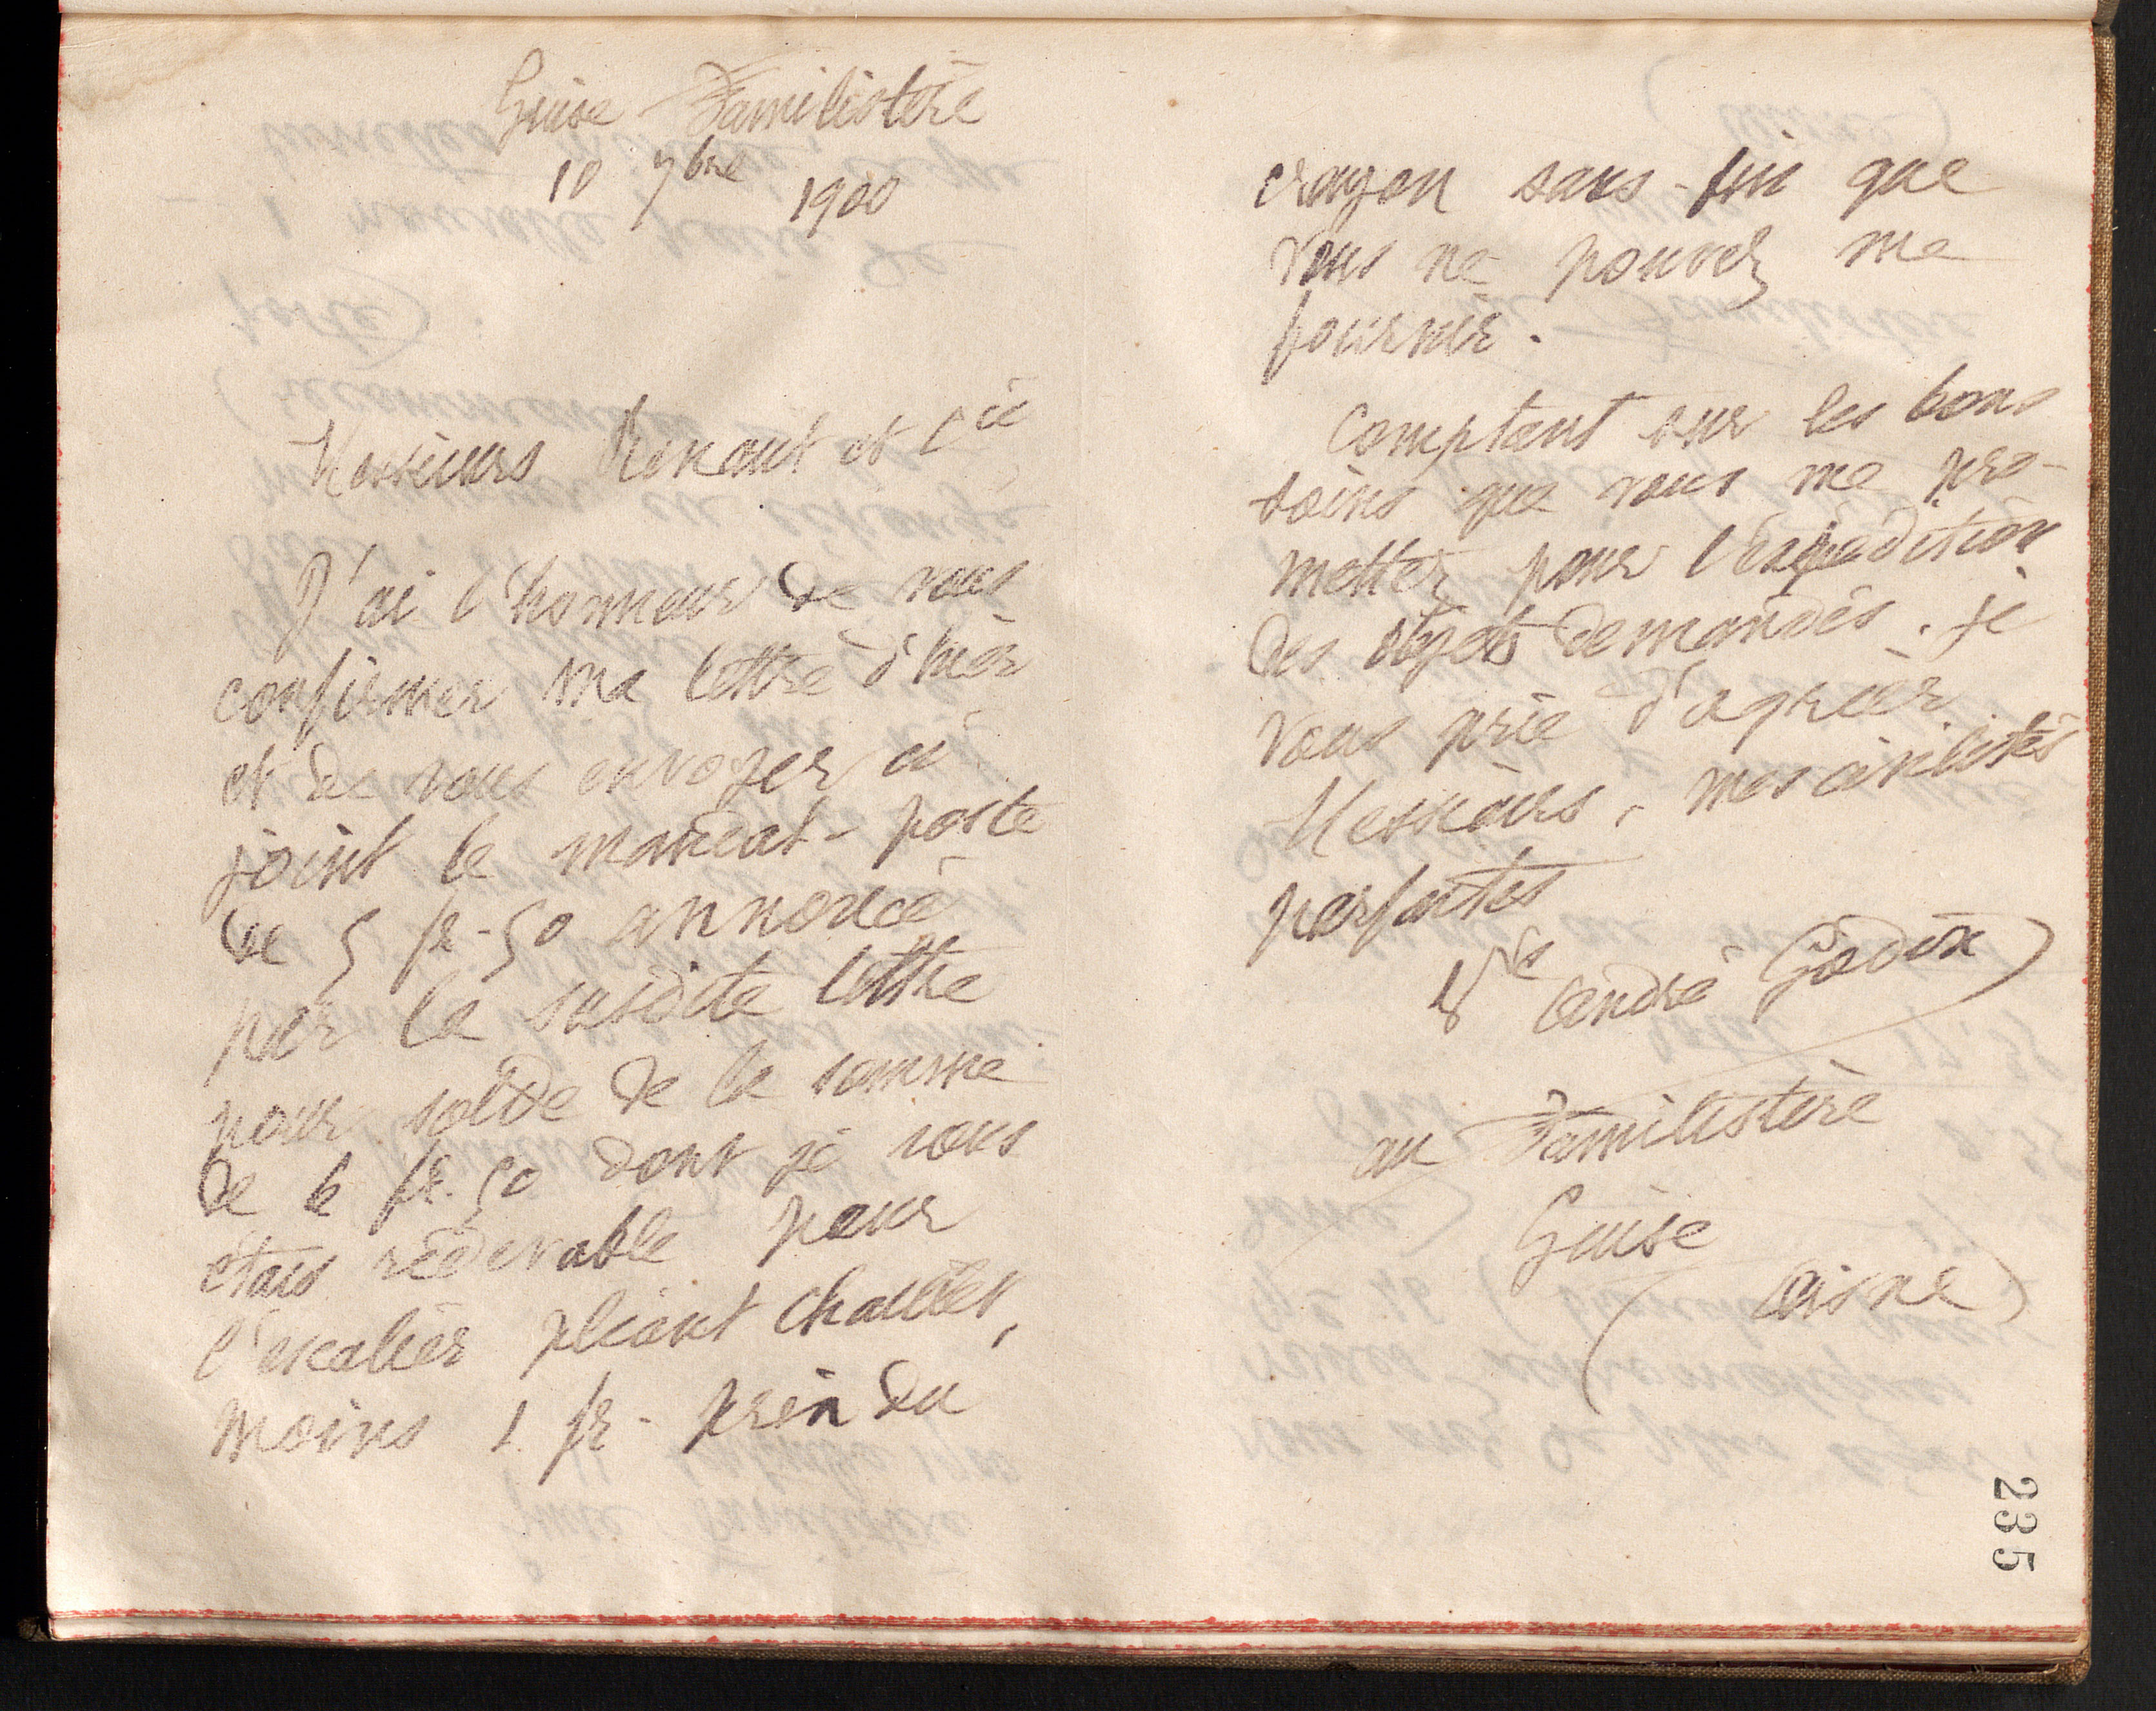 Guise Familistère
10 7bre 1900
Messieurs Renout et Cie
J'ai l'honneur de vous
confirmer ma lettre d'hier
et de vous envoyer ci
joint le mandat-poste
de 5 fr-50 annoncé
par la susdite lettre
pour solde de la somme
de 6 fr. 50 dont je vous
étais redevable pour
l'escalier pliant
moins 1 fr- prix du
crayon sans-fin que
vous ne pouvez me
fournir.
Comptant sur les bons
soins que vous me pro-
mettez pour l'expédition
des objets demandés. je
vous prie d'agréer
Messieurs, mes civilités
parfaites
Vve André Godin
au Familistère
Guise
(Aisne)
235